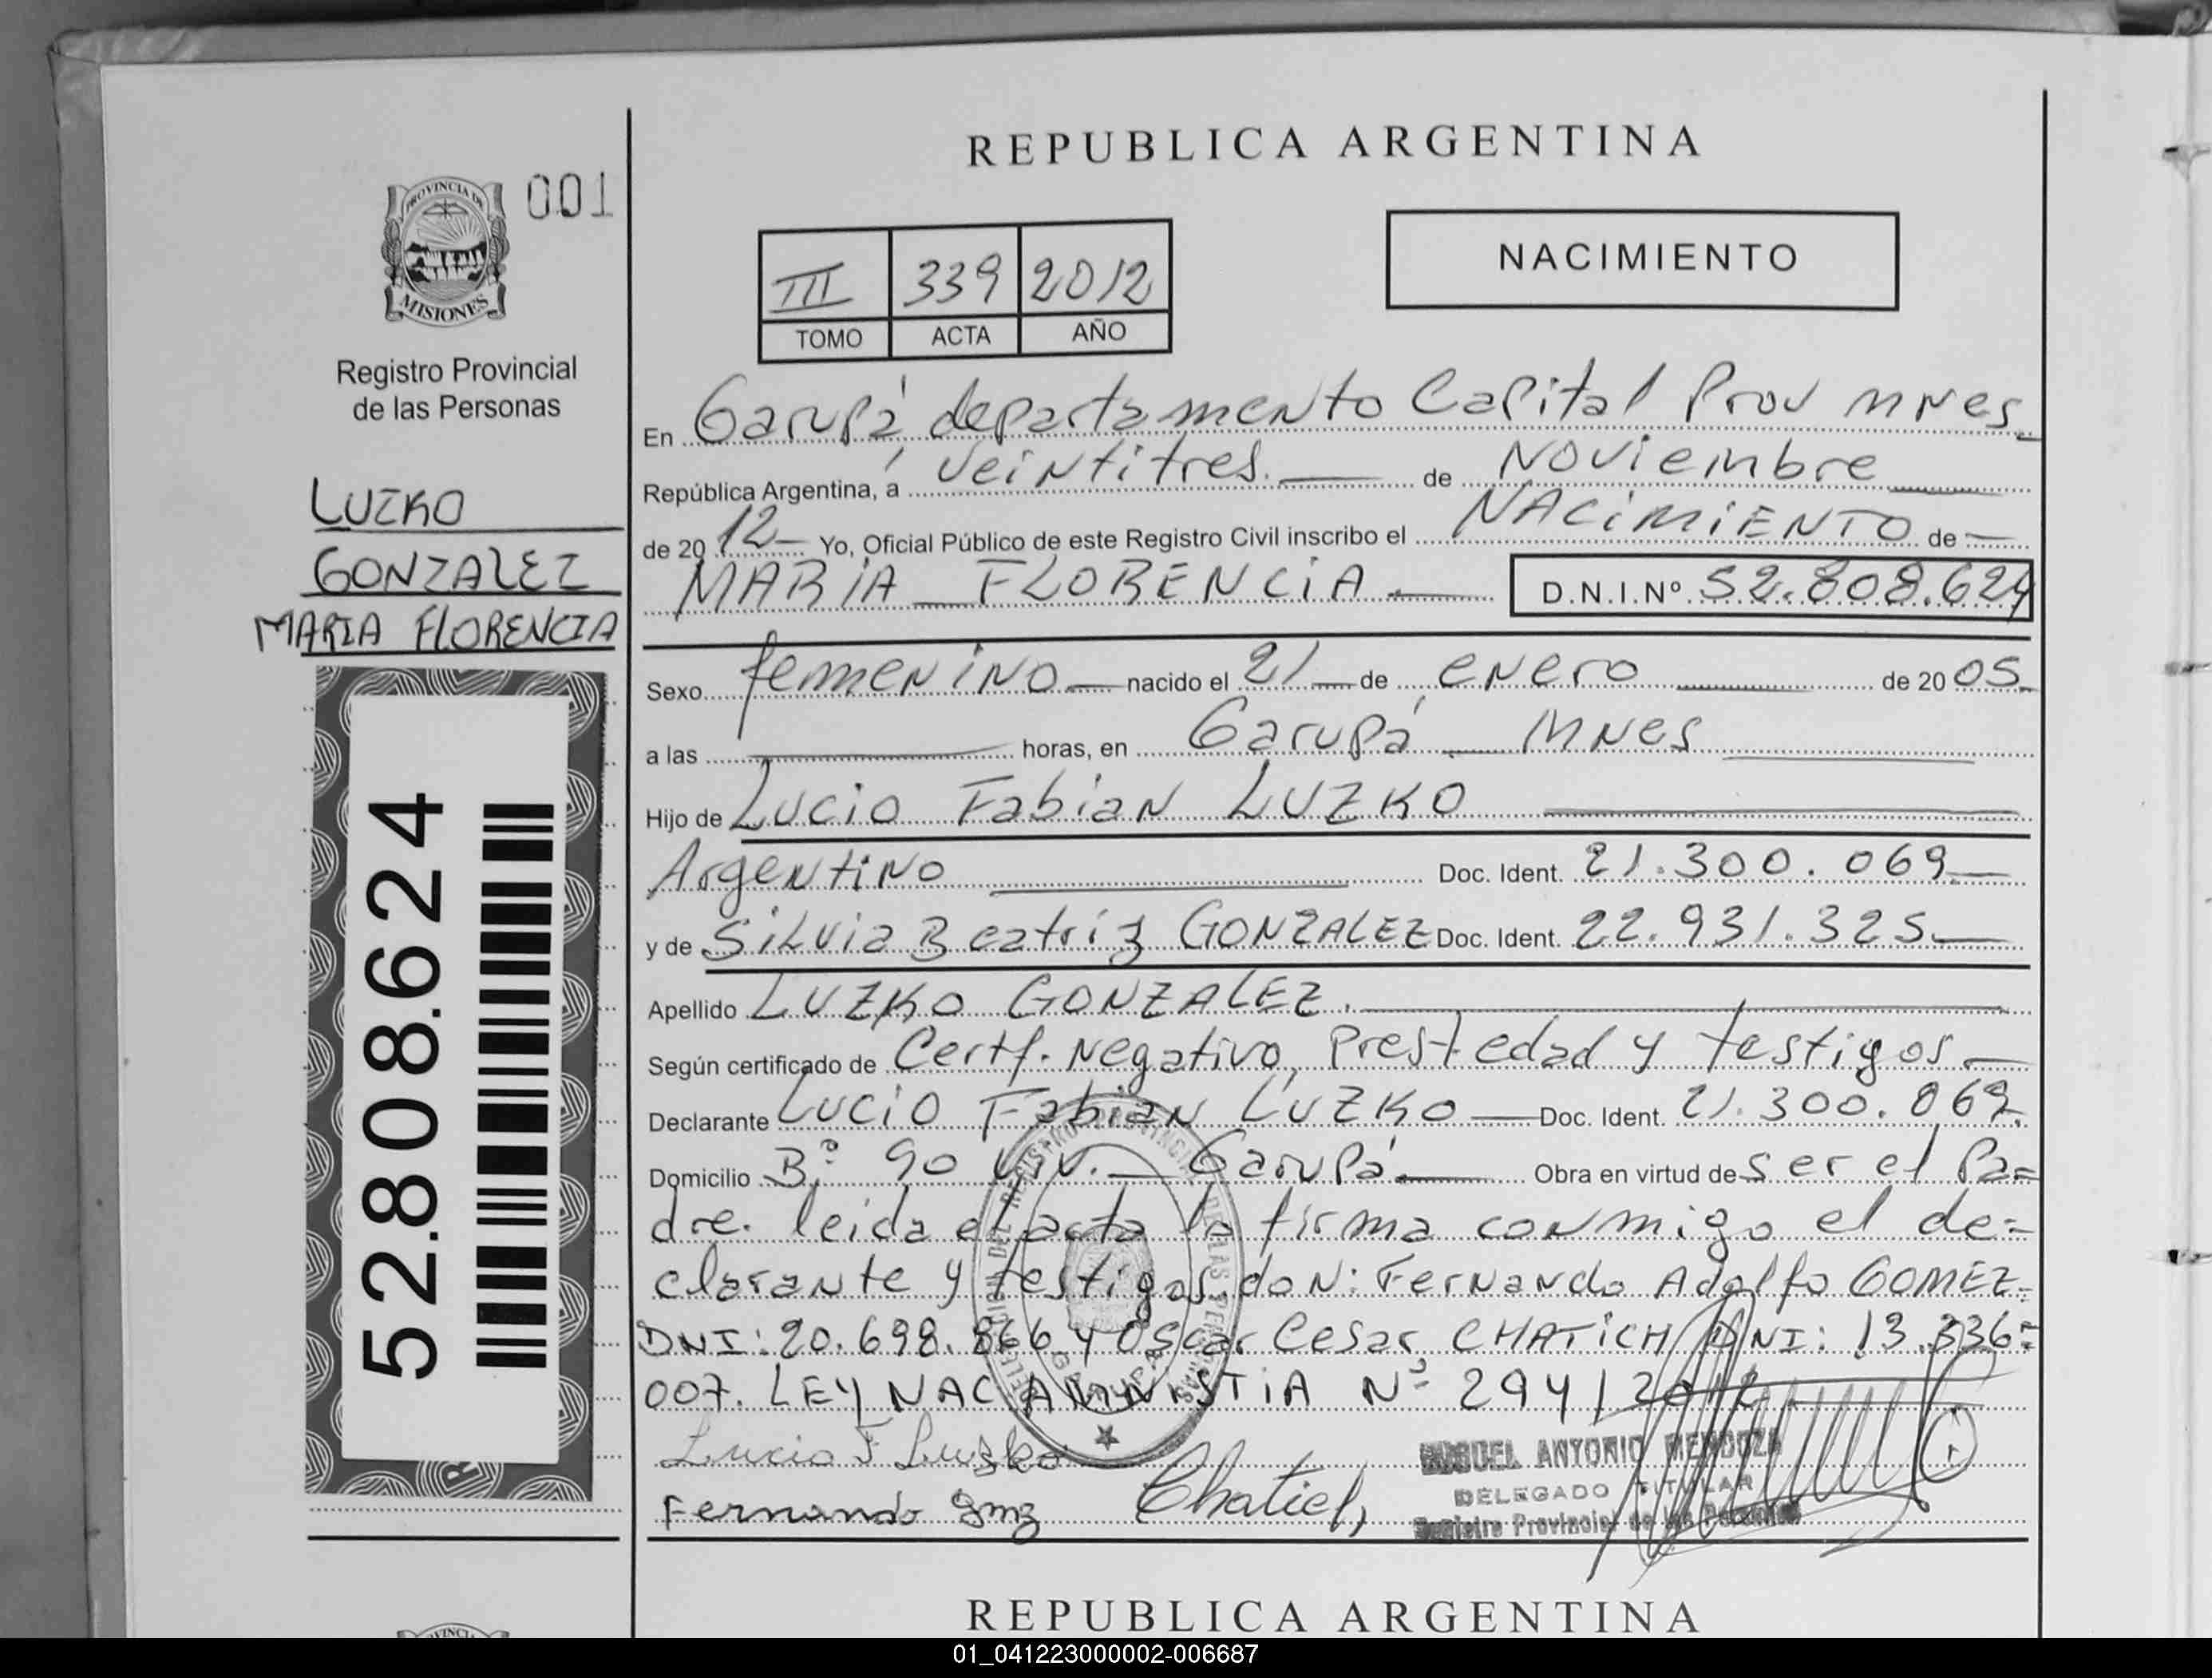 REPUBLICA ARGENTINA
001
PROVINCIA DE
MISIONES
NACIMIENTO
III 339 2012
TOMO ACTA AÑO
Registro Provincial
de las Personas
LUZKO
GONZALEZ
MARIA FLORENCIA
52.808.624
En Garupá departamento Capital Prov mnes
República Argentina, a veintitres. de Noviembre
de 2012 Yo, Oficial Público de este Registro Civil inscribo el NACIMIENTO de
MARIA FLORENCIA D.N.I.Nº 52.808.624
Sexo femenino nacido el 21 de enero de 2005
a las horas, en Garupá Mnes
Hijo de Lucio Fabian LUZKO
Argentino Doc. Ident. 21.300.069
y de Silvia Beatriz GONZALEZ Doc. Ident. 22.931.325
Apellido LUZKO GONZALEZ.
Según certificado de Certf. Negativo, Prest. edad y testigos
Declarante Lucio Fabian LUZKO Doc. Ident. 21.300.069
Domicilio Bº 90 viv. Garupá Obra en virtud de ser el Pa=
dre. leida el acta la firma conmigo el de=
clarante y testigos don: Fernando Adolfo GOMEZ=
DNI: 20.698.866 y Oscar Cesar CHATICH DNI: 13.336=
007. LEY NAC AMNISTIA Nº 294/2012
Lucio F Luzko
MIGUEL ANTONIO MENDOZA
DELEGADO TITULAR
Registro Provincial de las Personas
Fernando Gmz Chatich
REPUBLICA ARGENTINA
01_041223000002-006687